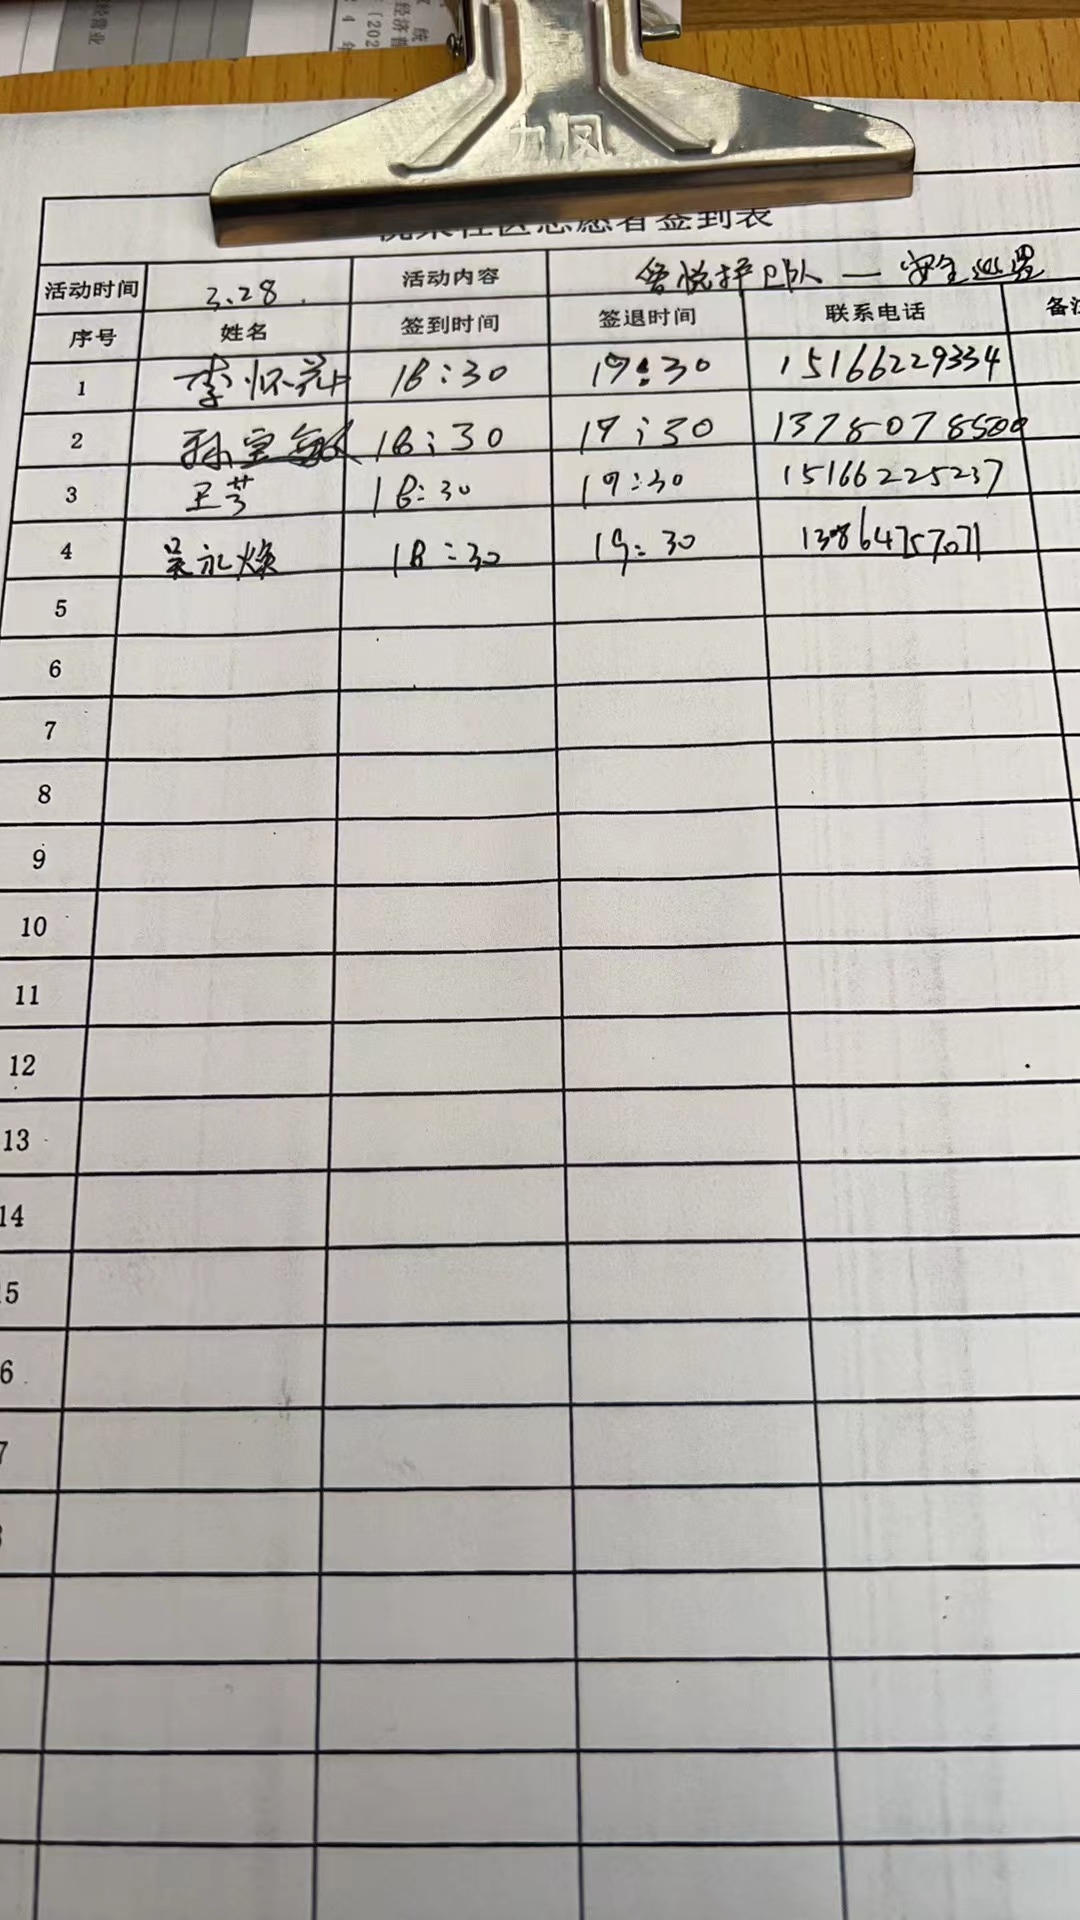 力凤
社区志愿者签到表
活动时间 3.28. 活动内容 悦护卫队 — 安全巡
序号 姓名 签到时间 签退时间 联系电话 备注
1 李怀 18:30 19:30 15166229334
2 孙宝敏 18:30 19:30 13780785
3 王芳 18:30 19:30 15166225237
4 吴永焕 18:30 19:30 13864757071
5
6
7
8
9
10
11
12
13
14